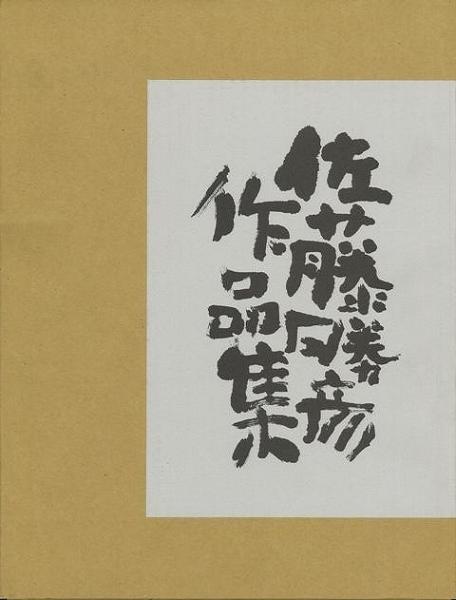 佐藤勝彦
作品集